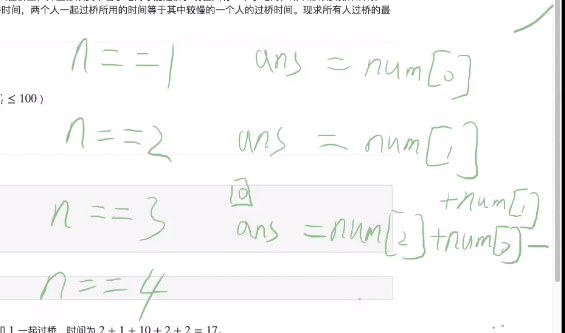 时间，两个人一起过桥所用的时间等于其中较慢的一个人的过桥时间。现求所有人过桥的最
n==1 ans = num[0]
≤ 100）
n==2 ans = num[1]
[0] +num[1]
n==3 ans = num[2]+num[0]—
n==4
1 一起过桥，时间为 2 + 1 + 10 + 2 + 2 = 17。